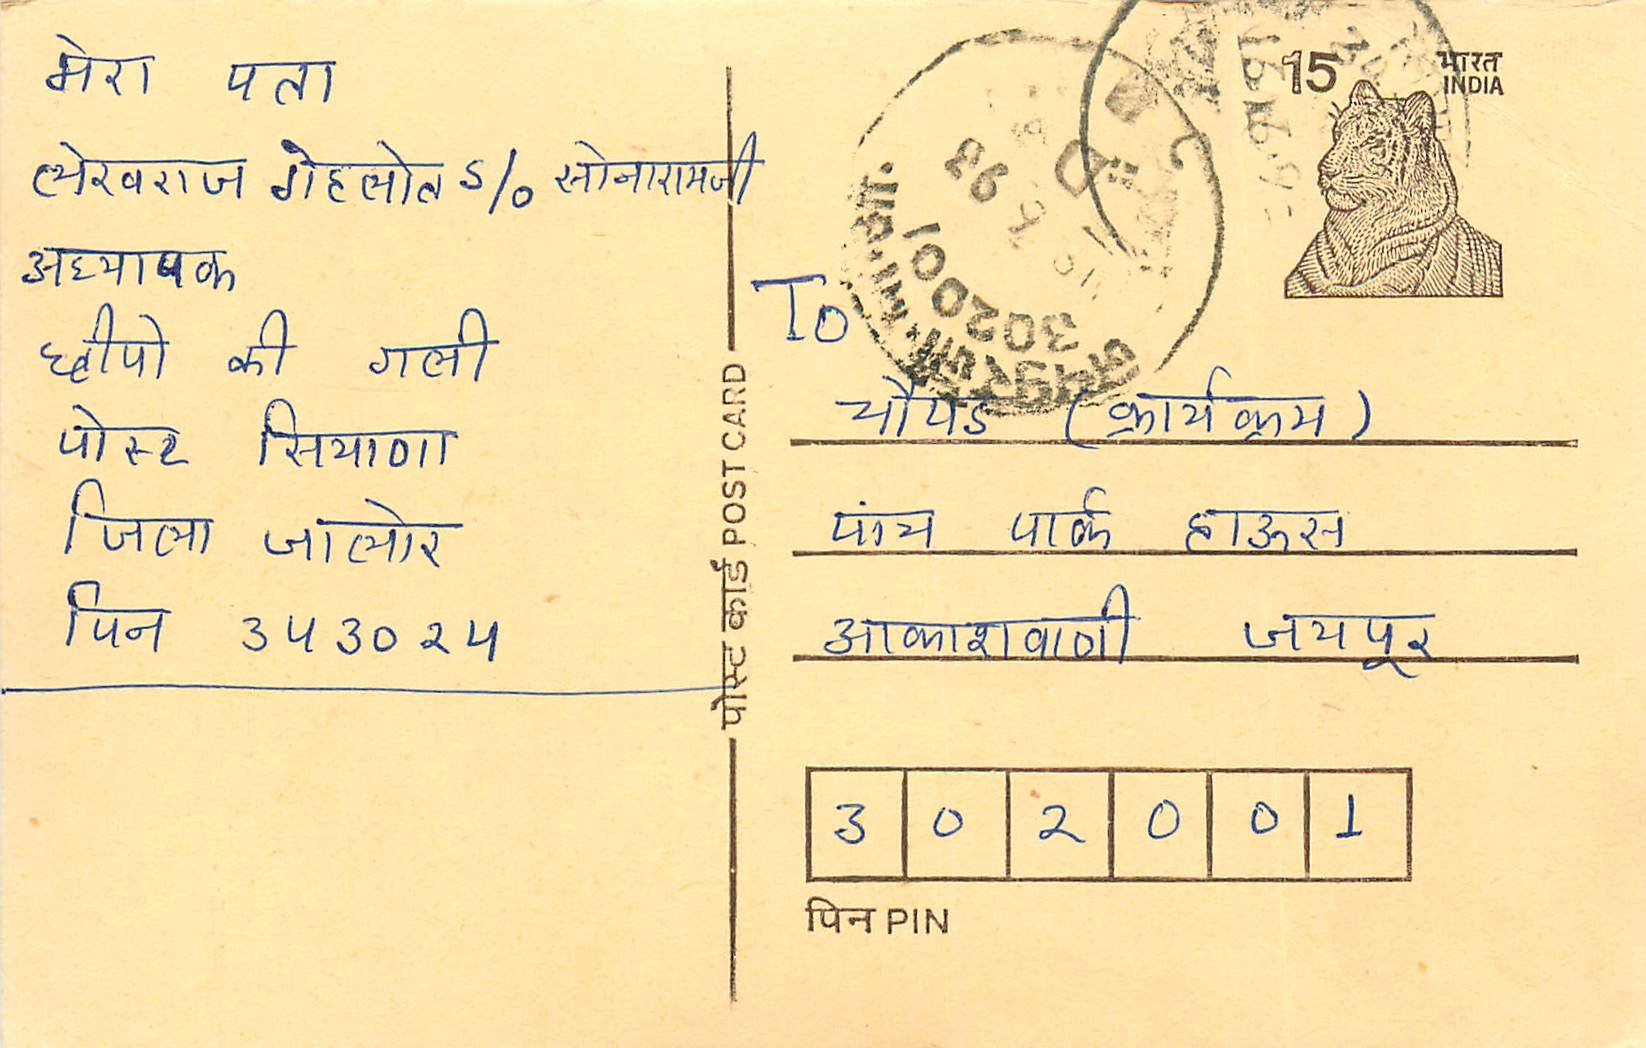 मेरा पता
लेखराज गेहलोत S/o सोनारामजी
अध्यापक
छीपो की गली
पोस्ट सियाणा
जिला जालोर
पिन 343024
पोस्ट कार्ड POST CARD
15
भारत
INDIA
जयपुर
302001
To
चौपड (कार्यक्रम)
पांच पार्क हाऊस
आकाशवाणी जयपूर
3 0 2 0 0 1
पिन PIN